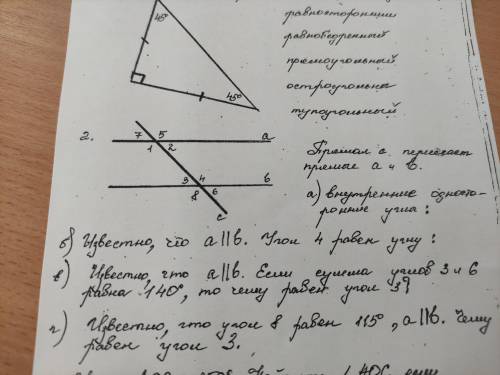 45°
45°
равносторонний
равнобедренный
прямоугольный
остроугольный
тупоугольный
2.
7 5
a
1 2
3 4
b
8 6
c
Прямая c пересекает
прямые a и b.
а) внутренние одност-
оронние углы:
б) Известно, что a||b. Угол 4 равен углу:
в) Известно, что a||b. Если сумма углов 3 и 6
равна 140°, то чему равен угол 3?
г) Известно, что угол 8 равен 115°, a||b. Чему
равен угол 3.